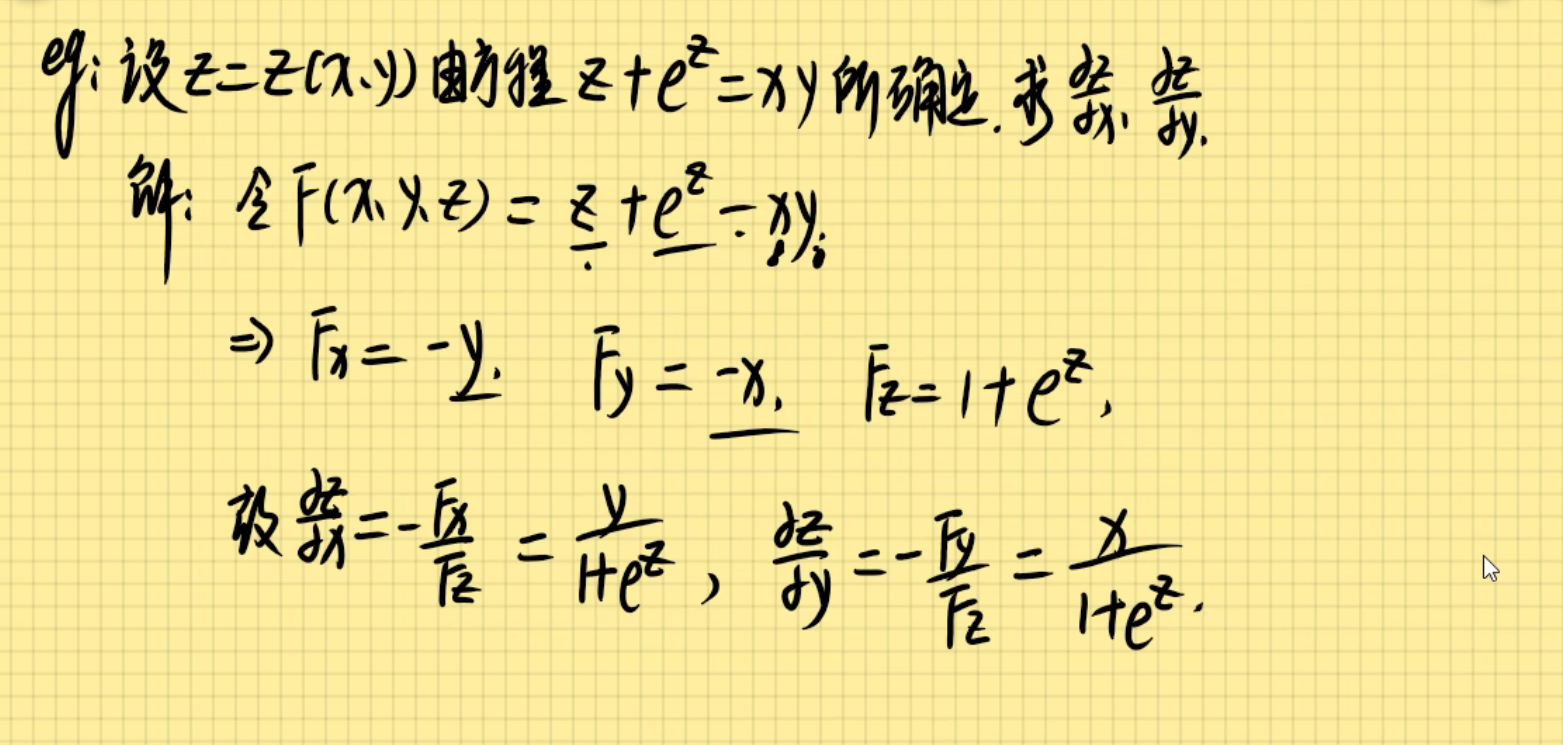 eg: 设 z=z(x、y) 由方程 z+e^z=xy 所确定. 求 ∂z/∂x、∂z/∂y.
解: 令 F(x、y、z) = z+e^z-xy;
⇒ Fx = -y. Fy = -x. Fz = 1+e^z,
故 ∂z/∂x = -Fx/Fz = y/(1+e^z), ∂z/∂y = -Fy/Fz = x/(1+e^z).